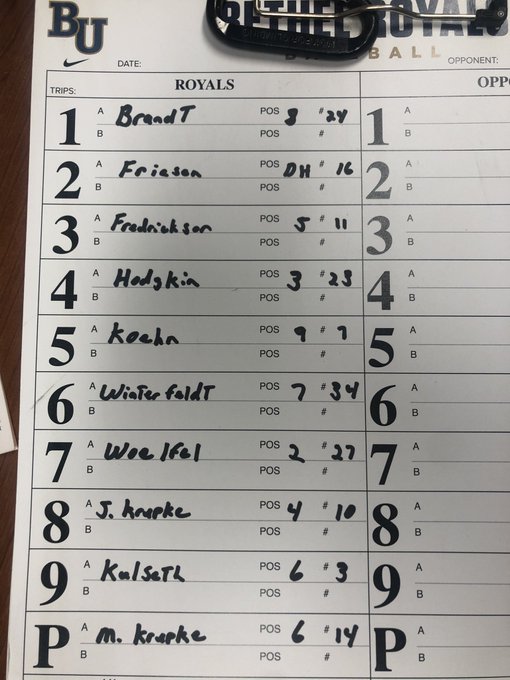 BU
BETHEL ROYALS
BASEBALL
DATE: OPPONENT:
TRIPS: ROYALS OPP
1 A Brandt POS 8 # 24 1 A
B POS # B
2 A Friesen POS DH # 16 2 A
B POS # B
3 A Fredrickson POS 5 # 11 3 A
B POS # B
4 A Hodgkin POS 3 # 23 4 A
B POS # B
5 A Koehn POS 9 # 7 5 A
B POS # B
6 A Winterfeldt POS 7 # 34 6 A
B POS # B
7 A Woelfel POS 2 # 27 7 A
B POS # B
8 A J. Krupke POS 4 # 10 8 A
B POS # B
9 A Kalseth POS 6 # 3 9 A
B POS # B
P A M. Krupke POS 6 # 14 P A
B POS # B